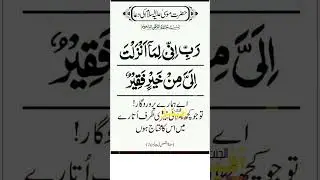 حضرت موسیٰ علیہ السلام کی دعا
رَبِّ اِنِّیْ لِمَاۤ اَنْزَلْتَ
اِلَیَّ مِنْ خَیْرٍ فَقِیْرٌ
اے ہمارے پروردگار!
تو جو کچھ بھلائی میری طرف اُتارے
میں اس کا محتاج ہوں